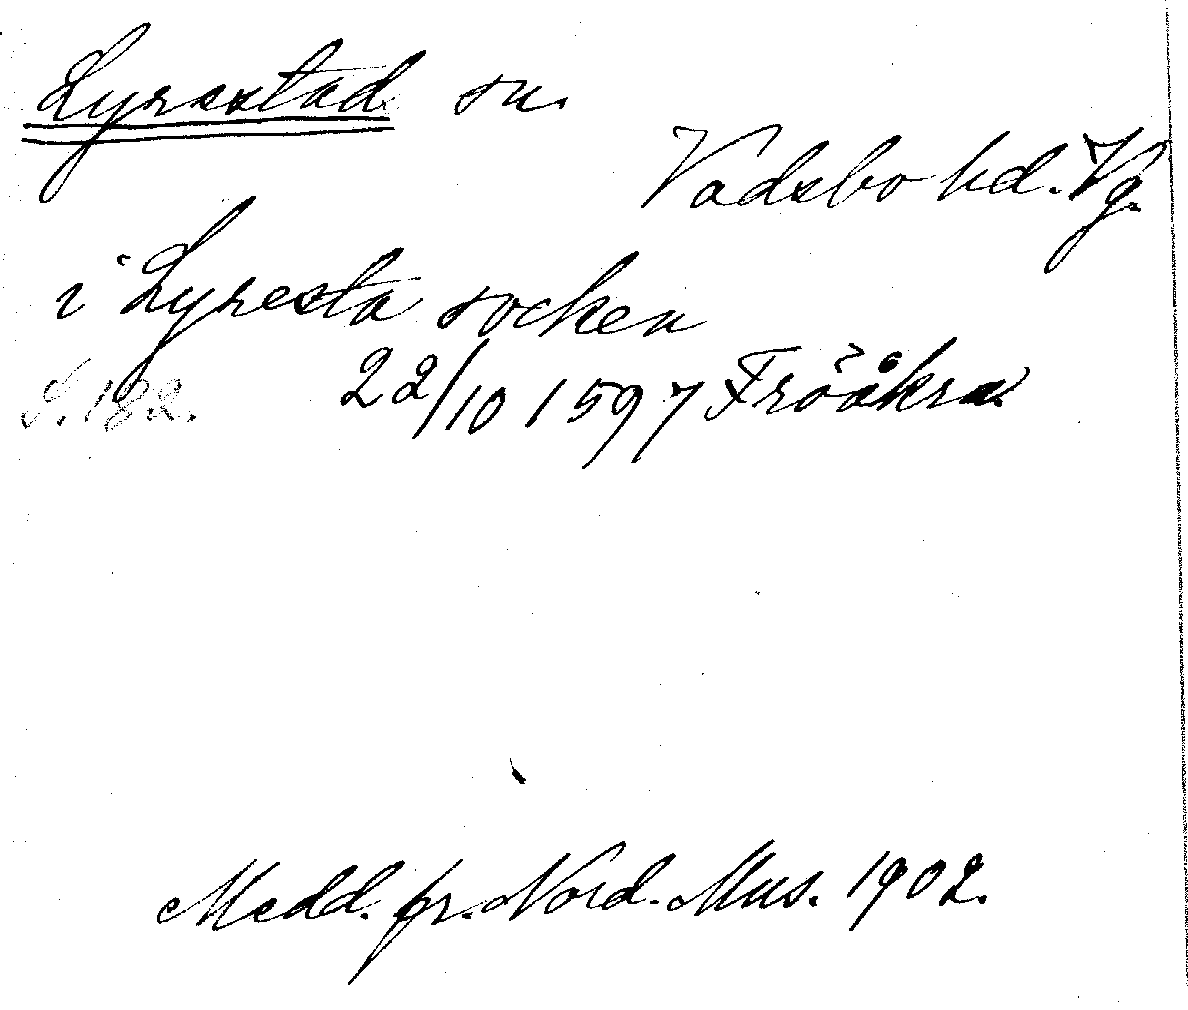 Lyrestad sn.
Vadsbo hd. Vg.
i Lyresta socken
S. 182. 22/10 1597 Fröåkra
Medd. fr. Nord. Mus. 1902.